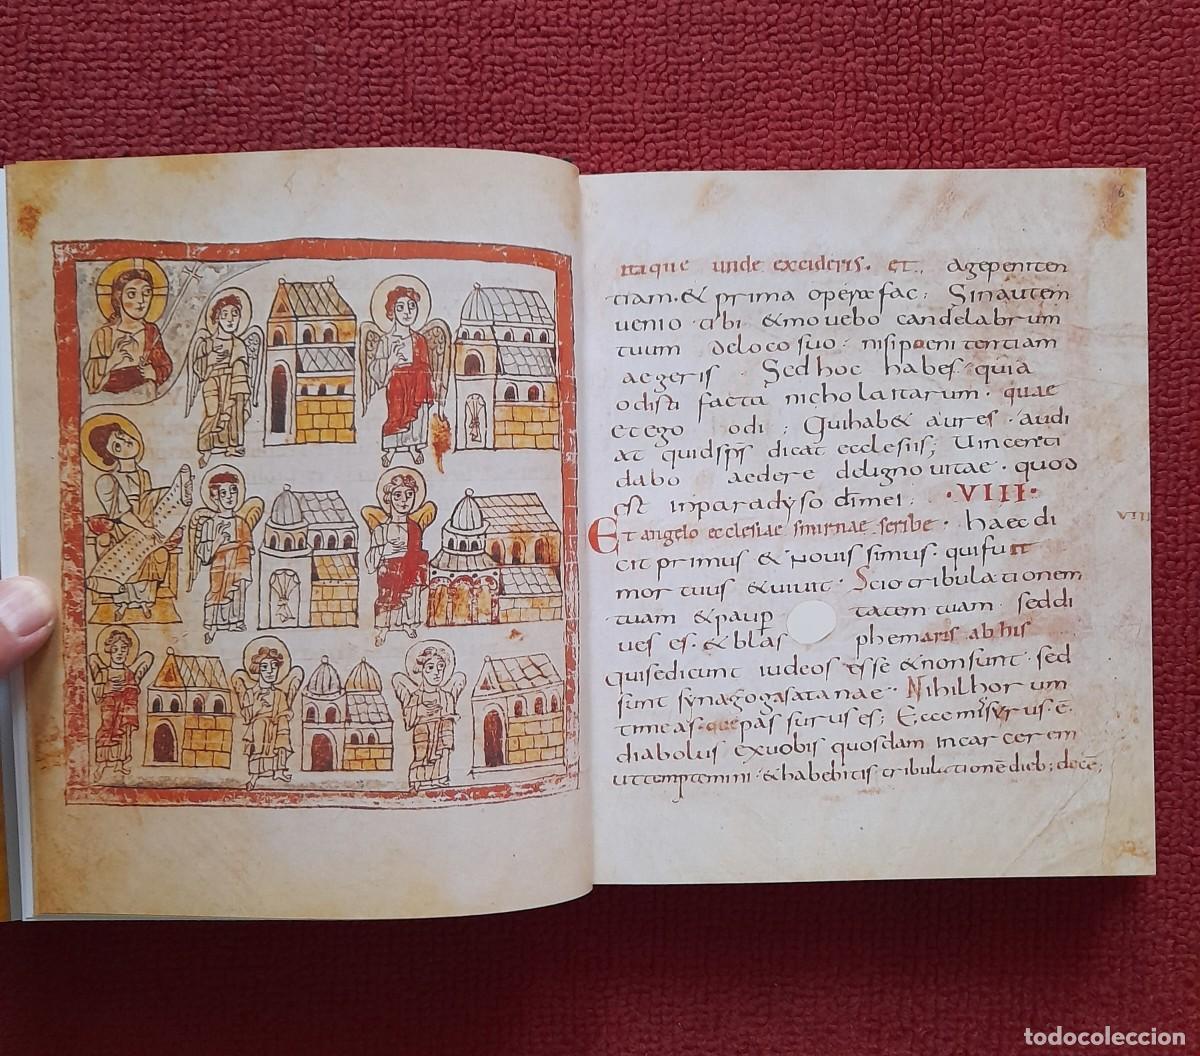 6
itaque unde excideris. et,, agepeniten
tiam. & prima opera fac; Sinautem
uenio tibi & mouebo candelabrum
tuum delocosuo: nisipoenitentiam
aegeris Sedhoc habes quia
odisti facta nicholaitarum. quae
etego odi; Quihab& aures audi
at quidsps dicat ecclesiis; Uincenti
dabo aedere deligno uitae. quod
est inparadyso dimei; ·VIII·
Et angelo ecclesiae smirnae scribe. haec di
VIII
cit primus & nouissimus. quifuit
mortuus & uiuit. Scio tribulationem
tuam & paup tatem tuam. seddi
ues es. & blas phemaris ab his
quisedicunt iudeos esse & nonsunt. sed
sunt synagogasatanae. Nihilhorum
timeas. quepassuruses; Eccemisurus ē
diabolus exuobis quosdam incarcerem
uttemptemini & habebitis tribulationē dieb; decē;
todocoleccion